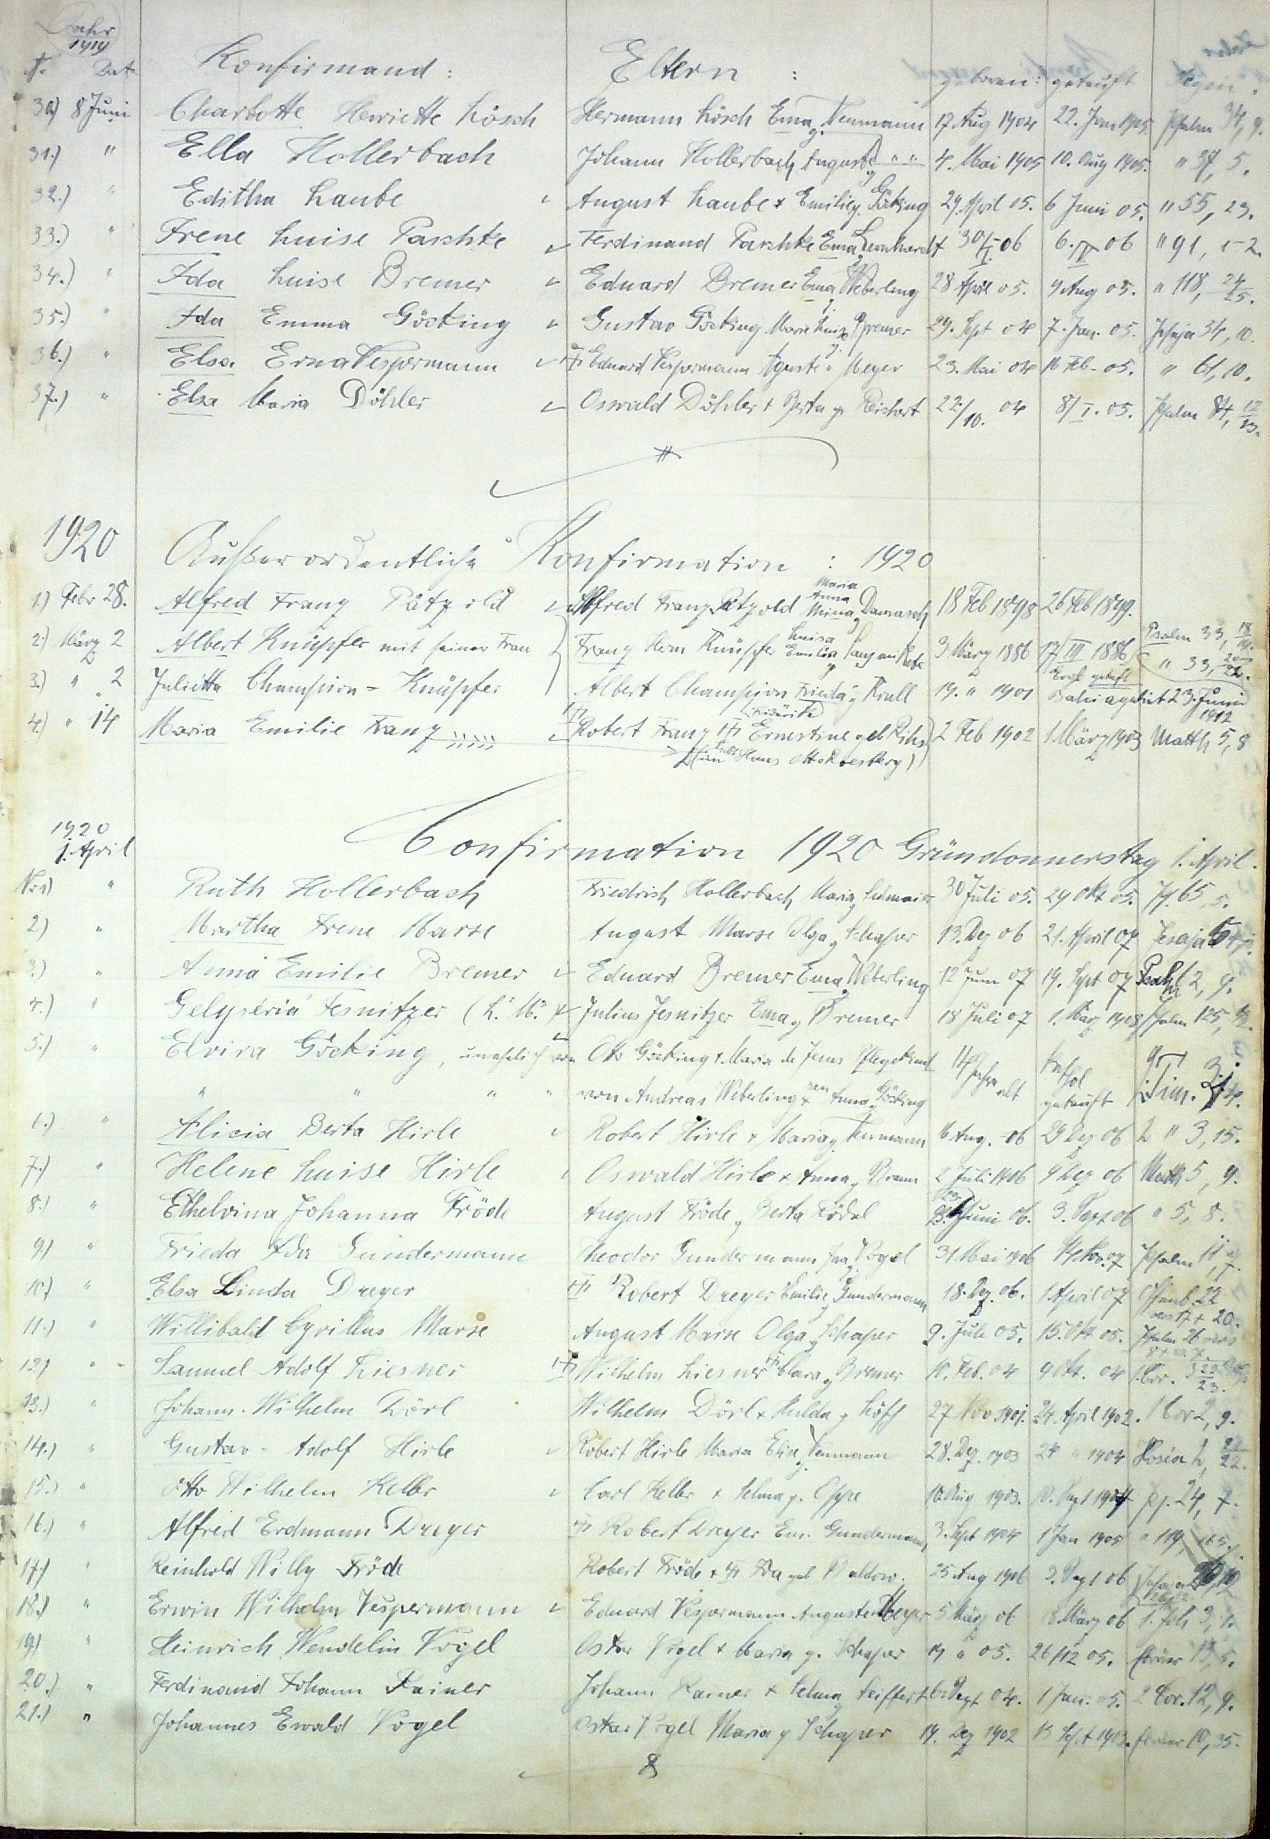 Jahr 1919
N. Dat Konfirmand : Eltern : geboren: getauft Segen:
30) 8 Juni Charlotte Henriette Lösch Hermann Lösch Ema g. Neumann 17. Aug 1904 22. Jan 1905 Psalm 34, 9.
31.) " Ella Hollerbach Johann Hollerbach Auguste g " " 4. Mai 1905 10. Aug 1905. " 37, 5.
32.) " Editha Laube Eltern August Laube + Emilie g. Göcking 29. April 05. 6 Juni 05. " 55, 23.
33.) " Irene Luise Paschke Ferdinand Paschke Ema g Leonhardt 30/I 06 6. IV 06 " 91, 1-2.
34.) " Ida Luise Bremer Eduard Bremer Ema g Weberling 28 April 05. 9. Aug 05. " 118, 24/25.
35.) " Ida Emma Göcking Gustav Göcking Maria Luise g. Bremer 29. Sept 04 7. Jan. 05. Jesaja 54, 10.
36.) " Elsa Erna Vespermann Eduard Vespermann Aguste g Meyer 23. Mai 04 16 Feb. 05. " 61, 10.
37.) " Elsa Maria Döhler Oswald Döhler + Berta g. Reichert 22/10. 04 8/I. 05. Psalm 84, 12/13.
1920 Außerordentliche Konfirmation : 1920
1) Febr 28. Alfred Franz Pätzold Alfred Franz Pätzold Maria Anna Mina g Damasch 18 Feb 1898 26 Feb 1899.
2.) März 2 Albert Knüpfer mit seiner Frau Franz Herm Knüpfer Luisa Emilia g 3 März 1886 17/III 1886 Psalm 33, 18/19.
3.) " 2 Julietta Champion - Knüpfer Albert Champion Frieda g Krall 19. " 1901 getauft 23. Juni 1912 " 33, 20/22.
4.) " 14 Maria Emilie Franz Robert Franz Friderike Ernestine geb 2 Feb 1902 1. März 1903 Matth 5, 8
1920
1. April Confirmation 1920 Gründonnerstag 1. April.
No 1) " Ruth Hollerbach Friedrich Hollerbach Maria g 30 Juli 05. 29 Okt 05. Ps 65, 5.
2) " Martha Irene Marse August Marse Olga g Schaper 13. Dez 06 21. April 07 Jesaja
3.) " Anna Emilie Bremer Eduard Bremer Ema g Weberling 12 Juni 07 19. Sept 07 Psalm 62, 9.
4.) " Jesnitzer Julius Jesnitzer Ema g Bremer 18 Juli 07 1. Mrz 1908 Psalm 125,
5.) " Elvira Göcking, unehelich von Otto Göcking + Maria de Jesus Pflegekind 14 Jahre alt kathol getauft Tim. 3, 14.
" " " " von Andreas Weberling + Anna g Göcking
6.) " Alicia Berta Hirle Robert Hirle + Maria g. Neumann 6 Aug. 06 25 Dez 06 2 " 3, 15.
7.) " Helene Luise Hirle Oswald Hirle + Anna g Braun 2 Juli 1906 9 Dez 06 Matth 5, 9.
8.) " Ethelvina Johanna Fröde August Fröde g Berta Juni 06. 3. Sept 06 " 5, 8.
9) " Frieda Ida Gundermann Theodor Gundermann g Vogel 31. Mai 1906 Psalm
10) " Elsa Linda Dreyer Robert Dreyer Emilie g Gundermann 18. Dez. 06. 1 April 07 Offenb. 22 vers 17 + 20.
11.) " Willibald Cyrillus Marse August Marse Olga g Schaper 9. Juli 05. 15. Okt 05. Psalm 26 vers
12.) " Samuel Adolf Liesner Wilhelm Liesner Clara g Bremer 10. Feb. 04 9 Okt. 04 1. Cor. 3 22/23.
13.) " Johann Wilhelm Dörl Wilhelm Dörl + Hulda g Höff 27 Nov 1901. 24. April 1902. 1 Cor 2, 9.
14.) " Gustav - Adolf Hirle Robert Hirle Maria Elise g Neumann 28. Dez. 1903 24 " 1904 Hosea 2, 21/22.
15.) " Otto Wilhelm Keller Carl Keller + Selma g. 10. Aug 1903. 10. Sept 1904 Ps. 24, 7.
16.) " Alfred Erdmann Dreyer Robert Dreyer Em. Gundermann 3. Sept 1904 1 Jan 1905 " 119, 165.
17) " Reinhold Willy Fröde Robert Fröde + Ida geb Waldow. 25 Aug 1906 3. Sept 06 Jesaja
18.) " Erwin Wilhelm Vespermann Eduard Vespermann Auguste g Meyer 5 März 06 März 06 1. Joh 3, 1.
19) " Heinrich Wendelin Vogel Oskar Vogel + Maria g. Schaper 14 " 05. 26/12 05. Ebräer 13, 5.
20.) " Ferdinand Johann Rainer Johann Rainer + Selma g Seiffert 6. Sept 04. 1 Jan. 05. 2 Cor. 12, 9.
21.) " Johannes Ewald Vogel Oskar Vogel Maria g Schaper 14. Dez 1902 13 Sept 1903. Ebräer 10, 35.